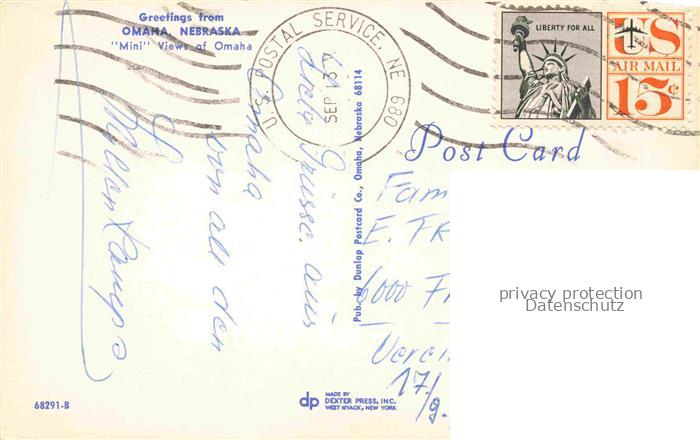 Greetings from
OMAHA, NEBRASKA
"Mini" Views of Omaha
U.S. POSTAL SERVICE, NE 680
SEP
LIBERTY FOR ALL
US
AIR MAIL
15¢
Post Card
Viele Grüsse aus
Omaha
von all den
Pub. by Dunlap Postcard Co., Omaha, Nebraska 68114
Fam
E. FR
6000 F
17/9.
privacy protection
Datenschutz
68291-B
dp
MADE BY
DEXTER PRESS, INC.
WEST NYACK, NEW YORK